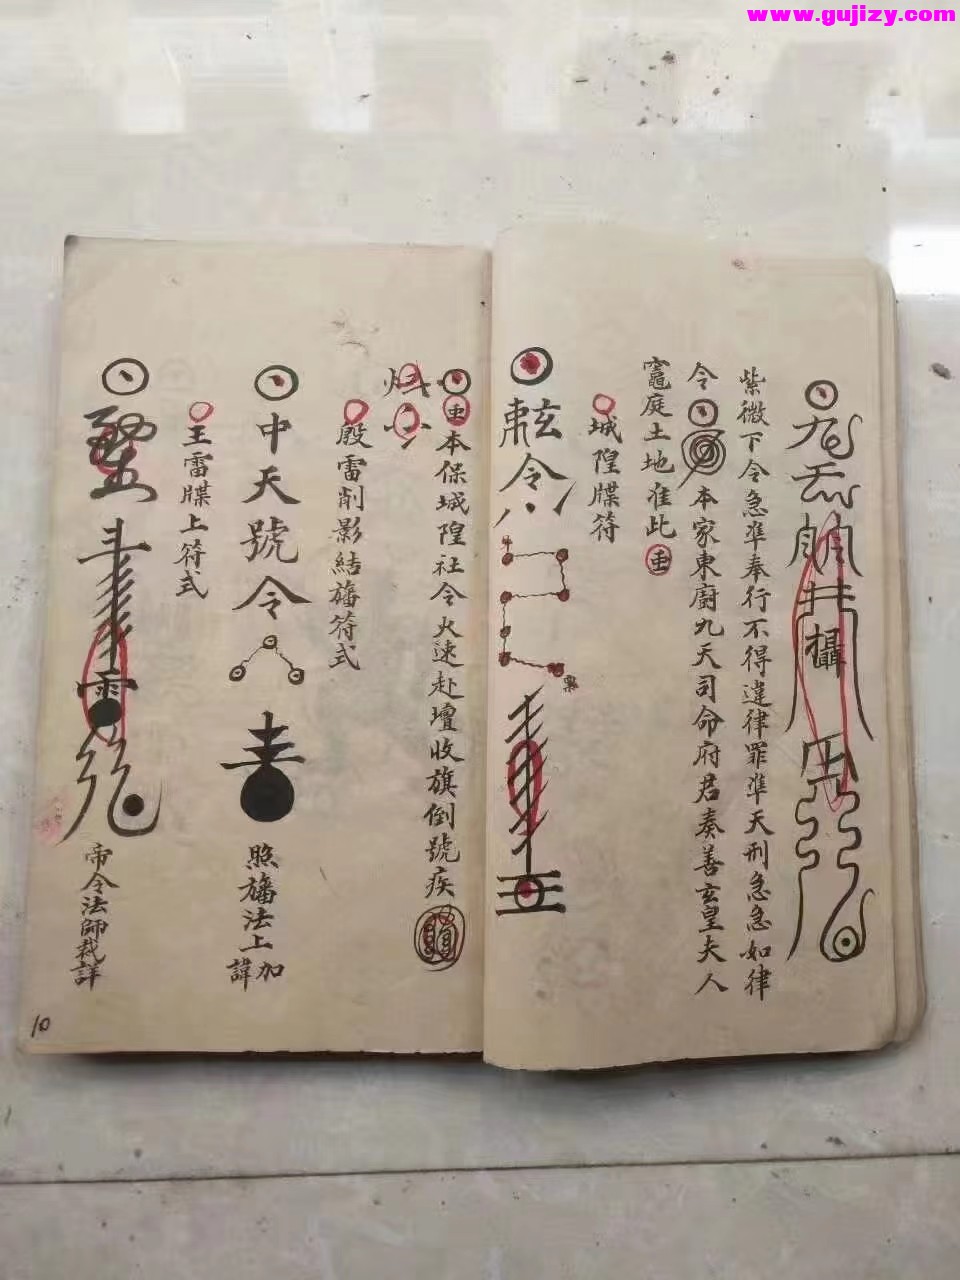 www.gujizy.com
攝
紫微下令急準奉行不得違律罪準天刑急急如律
令
本家東廚九天司命府君奏善玄皇夫人
竈庭土地准此
城隍牒符
令
本保城隍社令火速赴壇收旗倒號疾
殷雷削影結旛符式
中天號令
照旛法上加
諱
王雷牒上符式
帝令法師裁詳
10